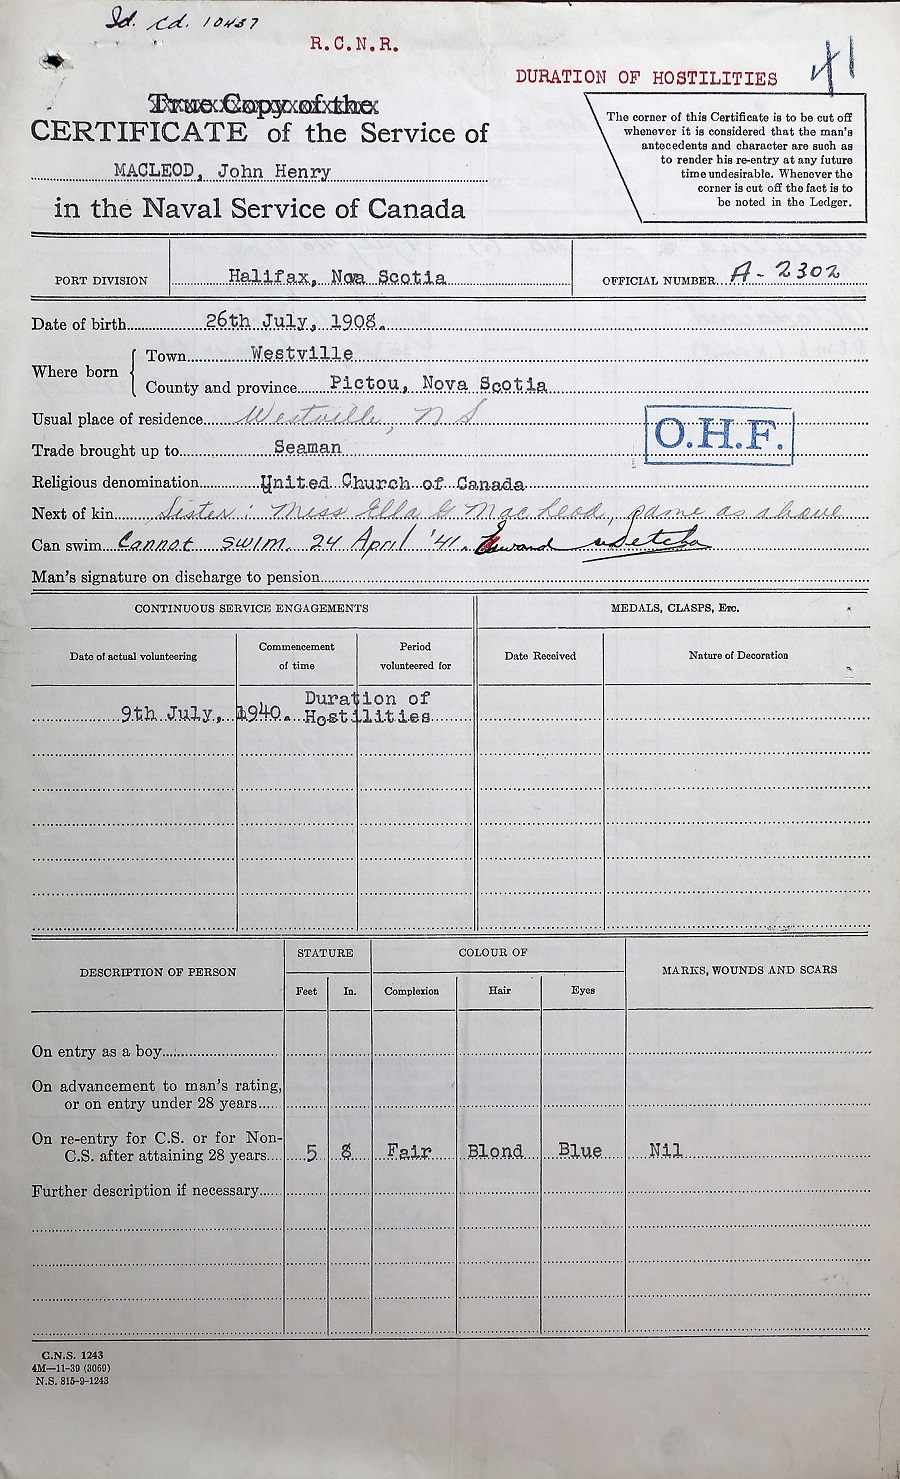 Id. cd. 10437
R.C.N.R.
DURATION OF HOSTILITIES
41
True Copy of the
CERTIFICATE of the Service of
MACLEOD, John Henry
in the Naval Service of Canada
The corner of this Certificate is to be cut off
whenever it is considered that the man's
antecedents and character are such as
to render his re-entry at any future
time undesirable. Whenever the
corner is cut off the fact is to
be noted in the Ledger.
PORT DIVISION Halifax, Nova Scotia OFFICIAL NUMBER A-2302
Date of birth 26th July, 1908.
Where born Town Westville
County and province Pictou, Nova Scotia
Usual place of residence Westville, N S
O.H.F.
Trade brought up to Seaman
Religious denomination United Church of Canada
Next of kin Sister: Miss Ella G MacLeod, same as above
Can swim Cannot swim. 24 April '41.
Man's signature on discharge to pension
CONTINUOUS SERVICE ENGAGEMENTS MEDALS, CLASPS, ETC.
Date of actual volunteering Commencement of time Period volunteered for Date Received Nature of Decoration
9th July, 1940. Duration of
Hostilities
DESCRIPTION OF PERSON STATURE COLOUR OF MARKS, WOUNDS AND SCARS
Feet In. Complexion Hair Eyes
On entry as a boy
On advancement to man's rating,
or on entry under 28 years
On re-entry for C.S. or for Non-
C.S. after attaining 28 years 5 8 Fair Blond Blue Nil
Further description if necessary
C.N.S. 1243
4M—11-39 (3069)
N.S. 815-9-1243